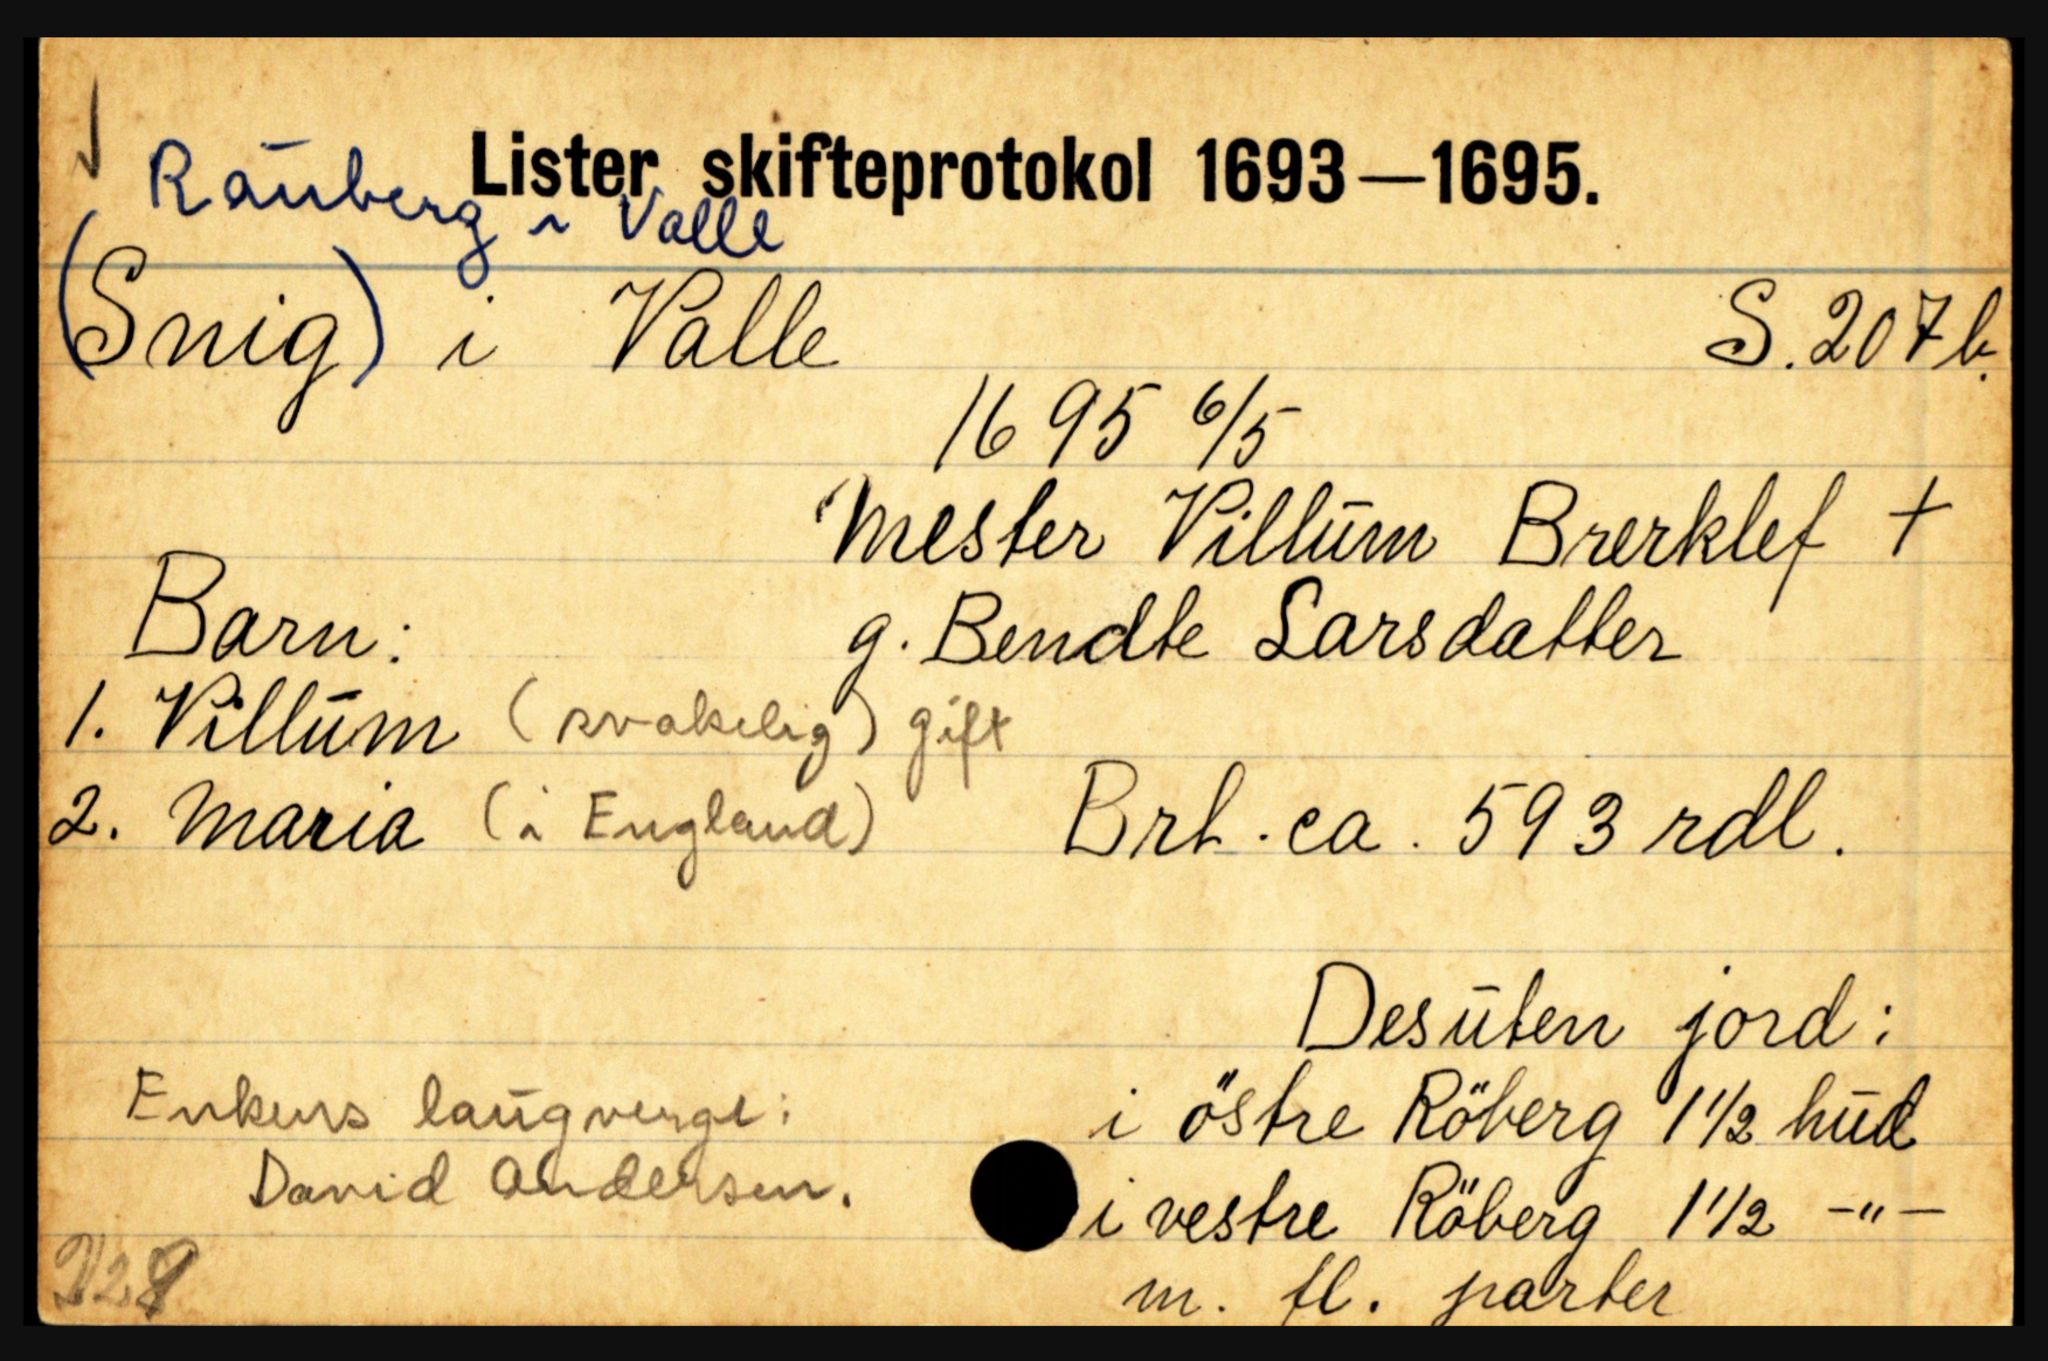 Lister skifteprotokol 1693—1695.
Rauberg i Valle
(Snig) i Valle S. 207b.
1695 6/5
Mester Villum Brerklef +
Barn: g. Bendte Larsdatter
1. Villum (svakelig) gift
2. Maria (i England) Brt. ca. 593 rdl.
Desuten jord:
Enkens laugverge: i östre Röberg 1 1/2 hud
David Andersen. i vestre Röberg 1 1/2 -"-
m. fl. parter